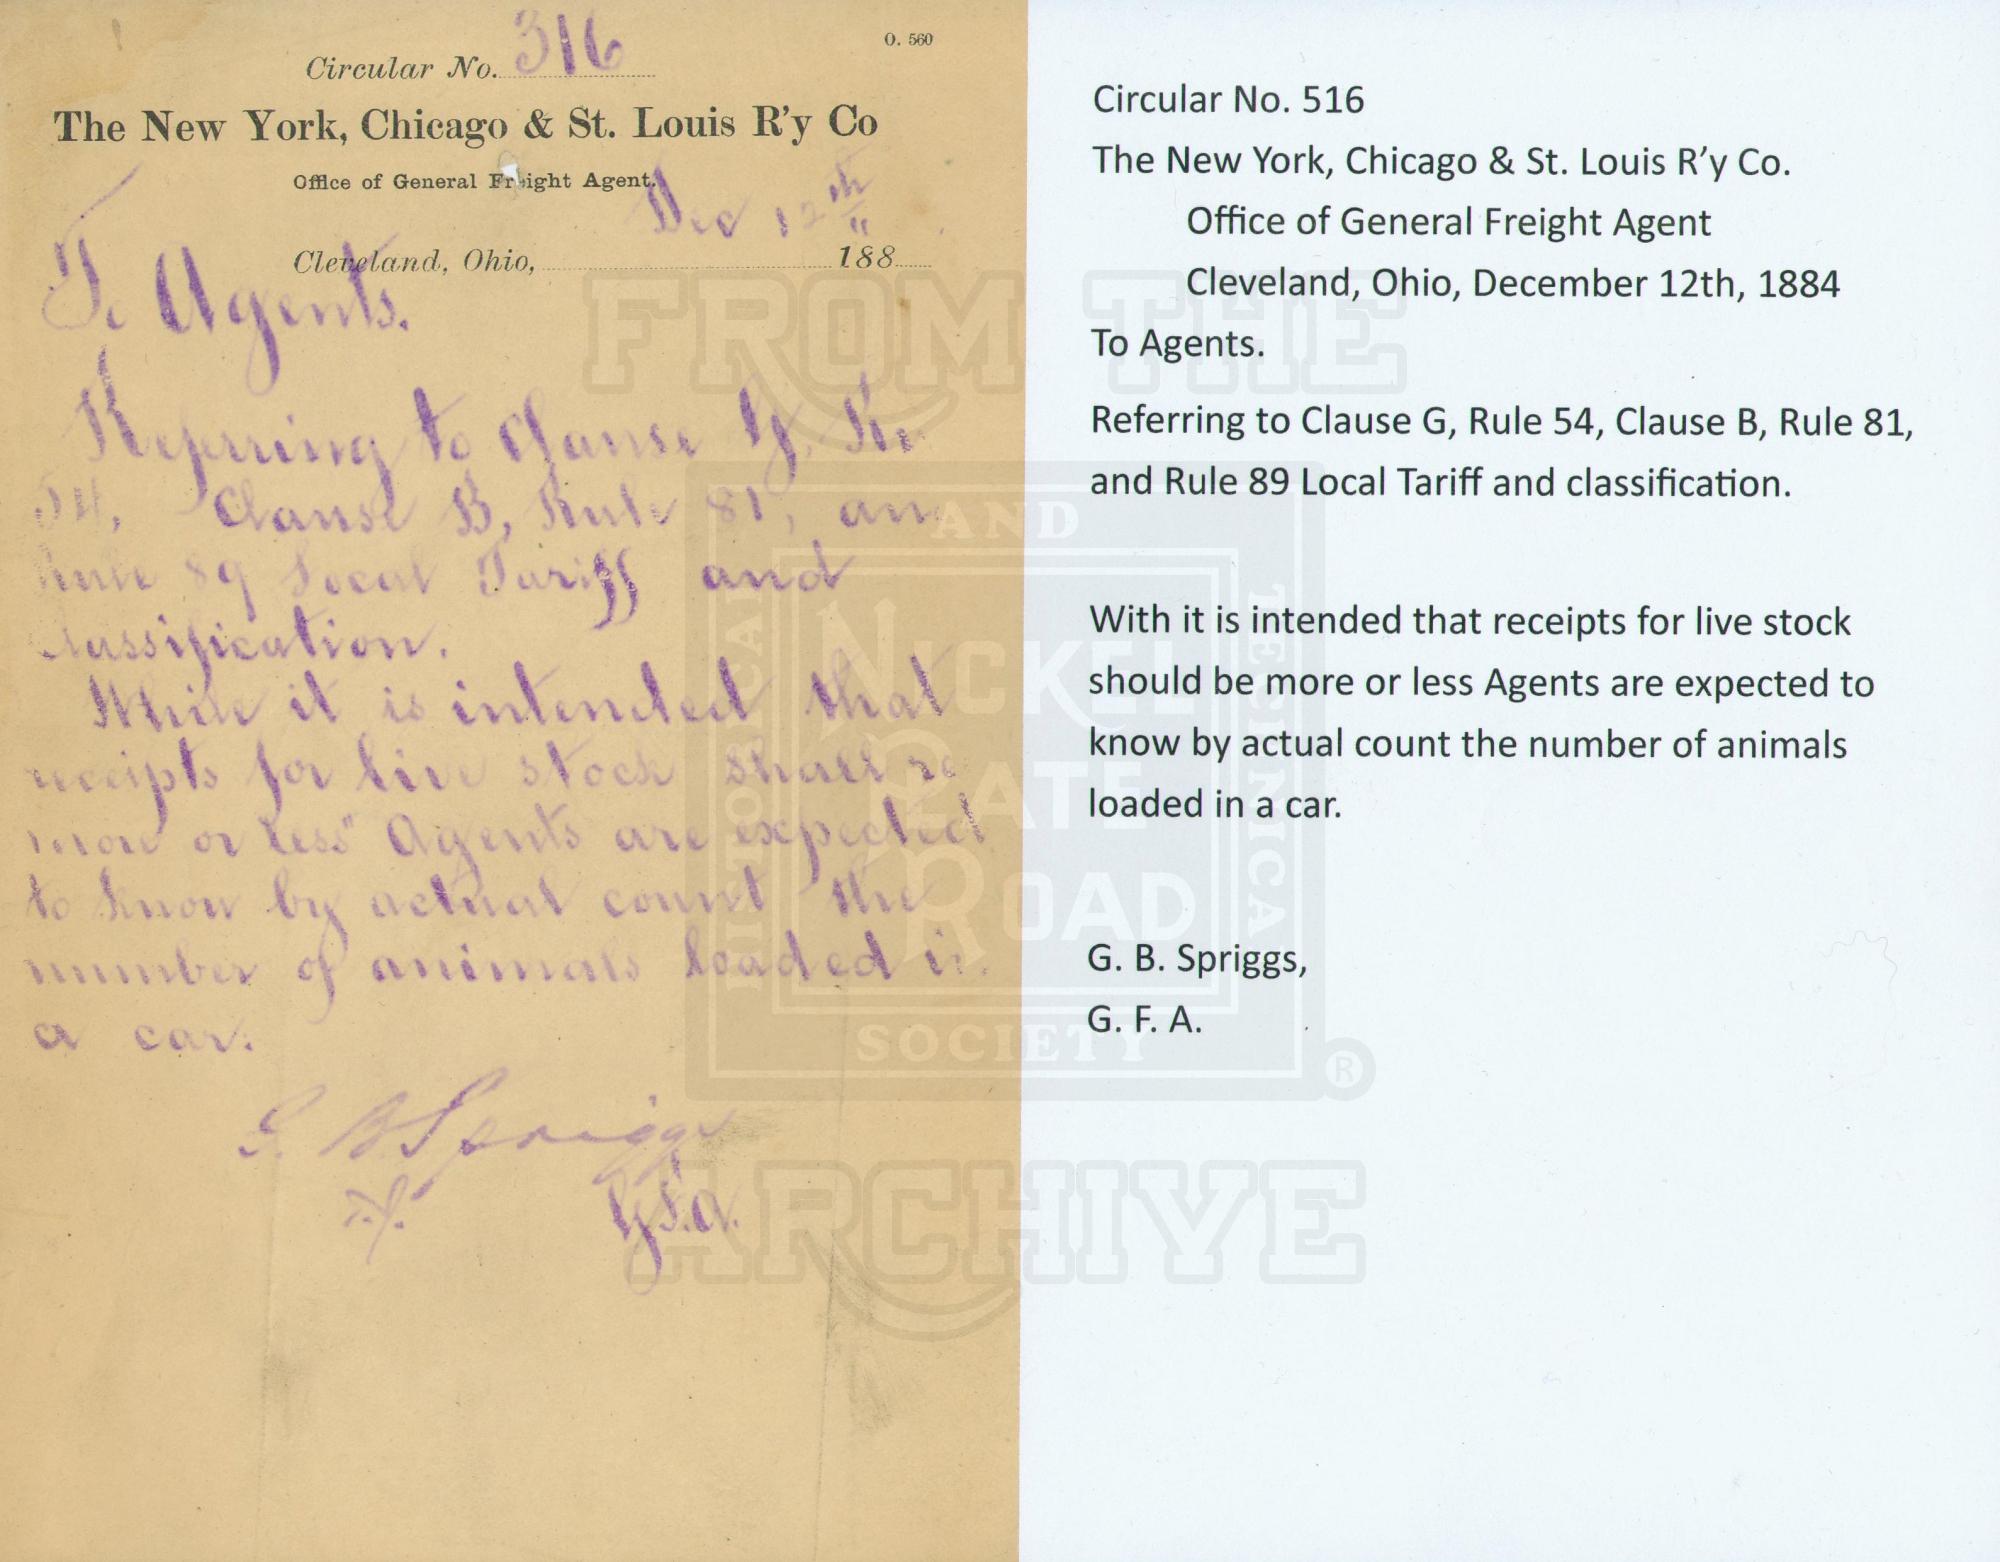 O. 560
Circular No. 316
The New York, Chicago & St. Louis R'y Co
Office of General Freight Agent.
Dec 12th
Cleveland, Ohio, 188
To Agents.
Referring to Clause G,
54, Clause B, Rule 81,
Rule 89 Local Tariff and
Classification.
While it is intended that
receipts for live stock shall
more or less" Agents are expected
to know by actual count the
number of animals loaded in
a car.
G. B. Spriggs
G.F.A.
Circular No. 516
The New York, Chicago & St. Louis R’y Co.
Office of General Freight Agent
Cleveland, Ohio, December 12th, 1884
To Agents.
Referring to Clause G, Rule 54, Clause B, Rule 81,
and Rule 89 Local Tariff and classification.
With it is intended that receipts for live stock
should be more or less Agents are expected to
know by actual count the number of animals
loaded in a car.
G. B. Spriggs,
G. F. A.
FROM THE
NICKEL
PLATE
ROAD
HISTORICAL
AND
TECHNICAL
SOCIETY
®
ARCHIVE